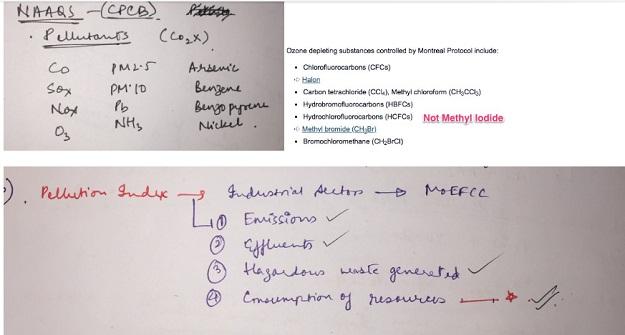 NAAQS - (CPCB)
• Pollutants (CO2X)
CO PM2.5 Arsenic
SOx PM10 Benzene
NOx Pb Benzopyrene
O3 NH3 Nickel.
Ozone depleting substances controlled by Montreal Protocol include:
• Chlorofluorocarbons (CFCs)
• Halon
• Carbon tetrachloride (CCl4), Methyl chloroform (CH3CCl3)
• Hydrobromofluorocarbons (HBFCs)
• Hydrochlorofluorocarbons (HCFCs) Not Methyl Iodide
• Methyl bromide (CH3Br)
• Bromochloromethane (CH2BrCl)
Pollution Index → Industrial Sectors → MoEFCC
① Emissions ✓
② Effluents ✓
③ Hazardous waste generated ✓
④ Consumption of resources